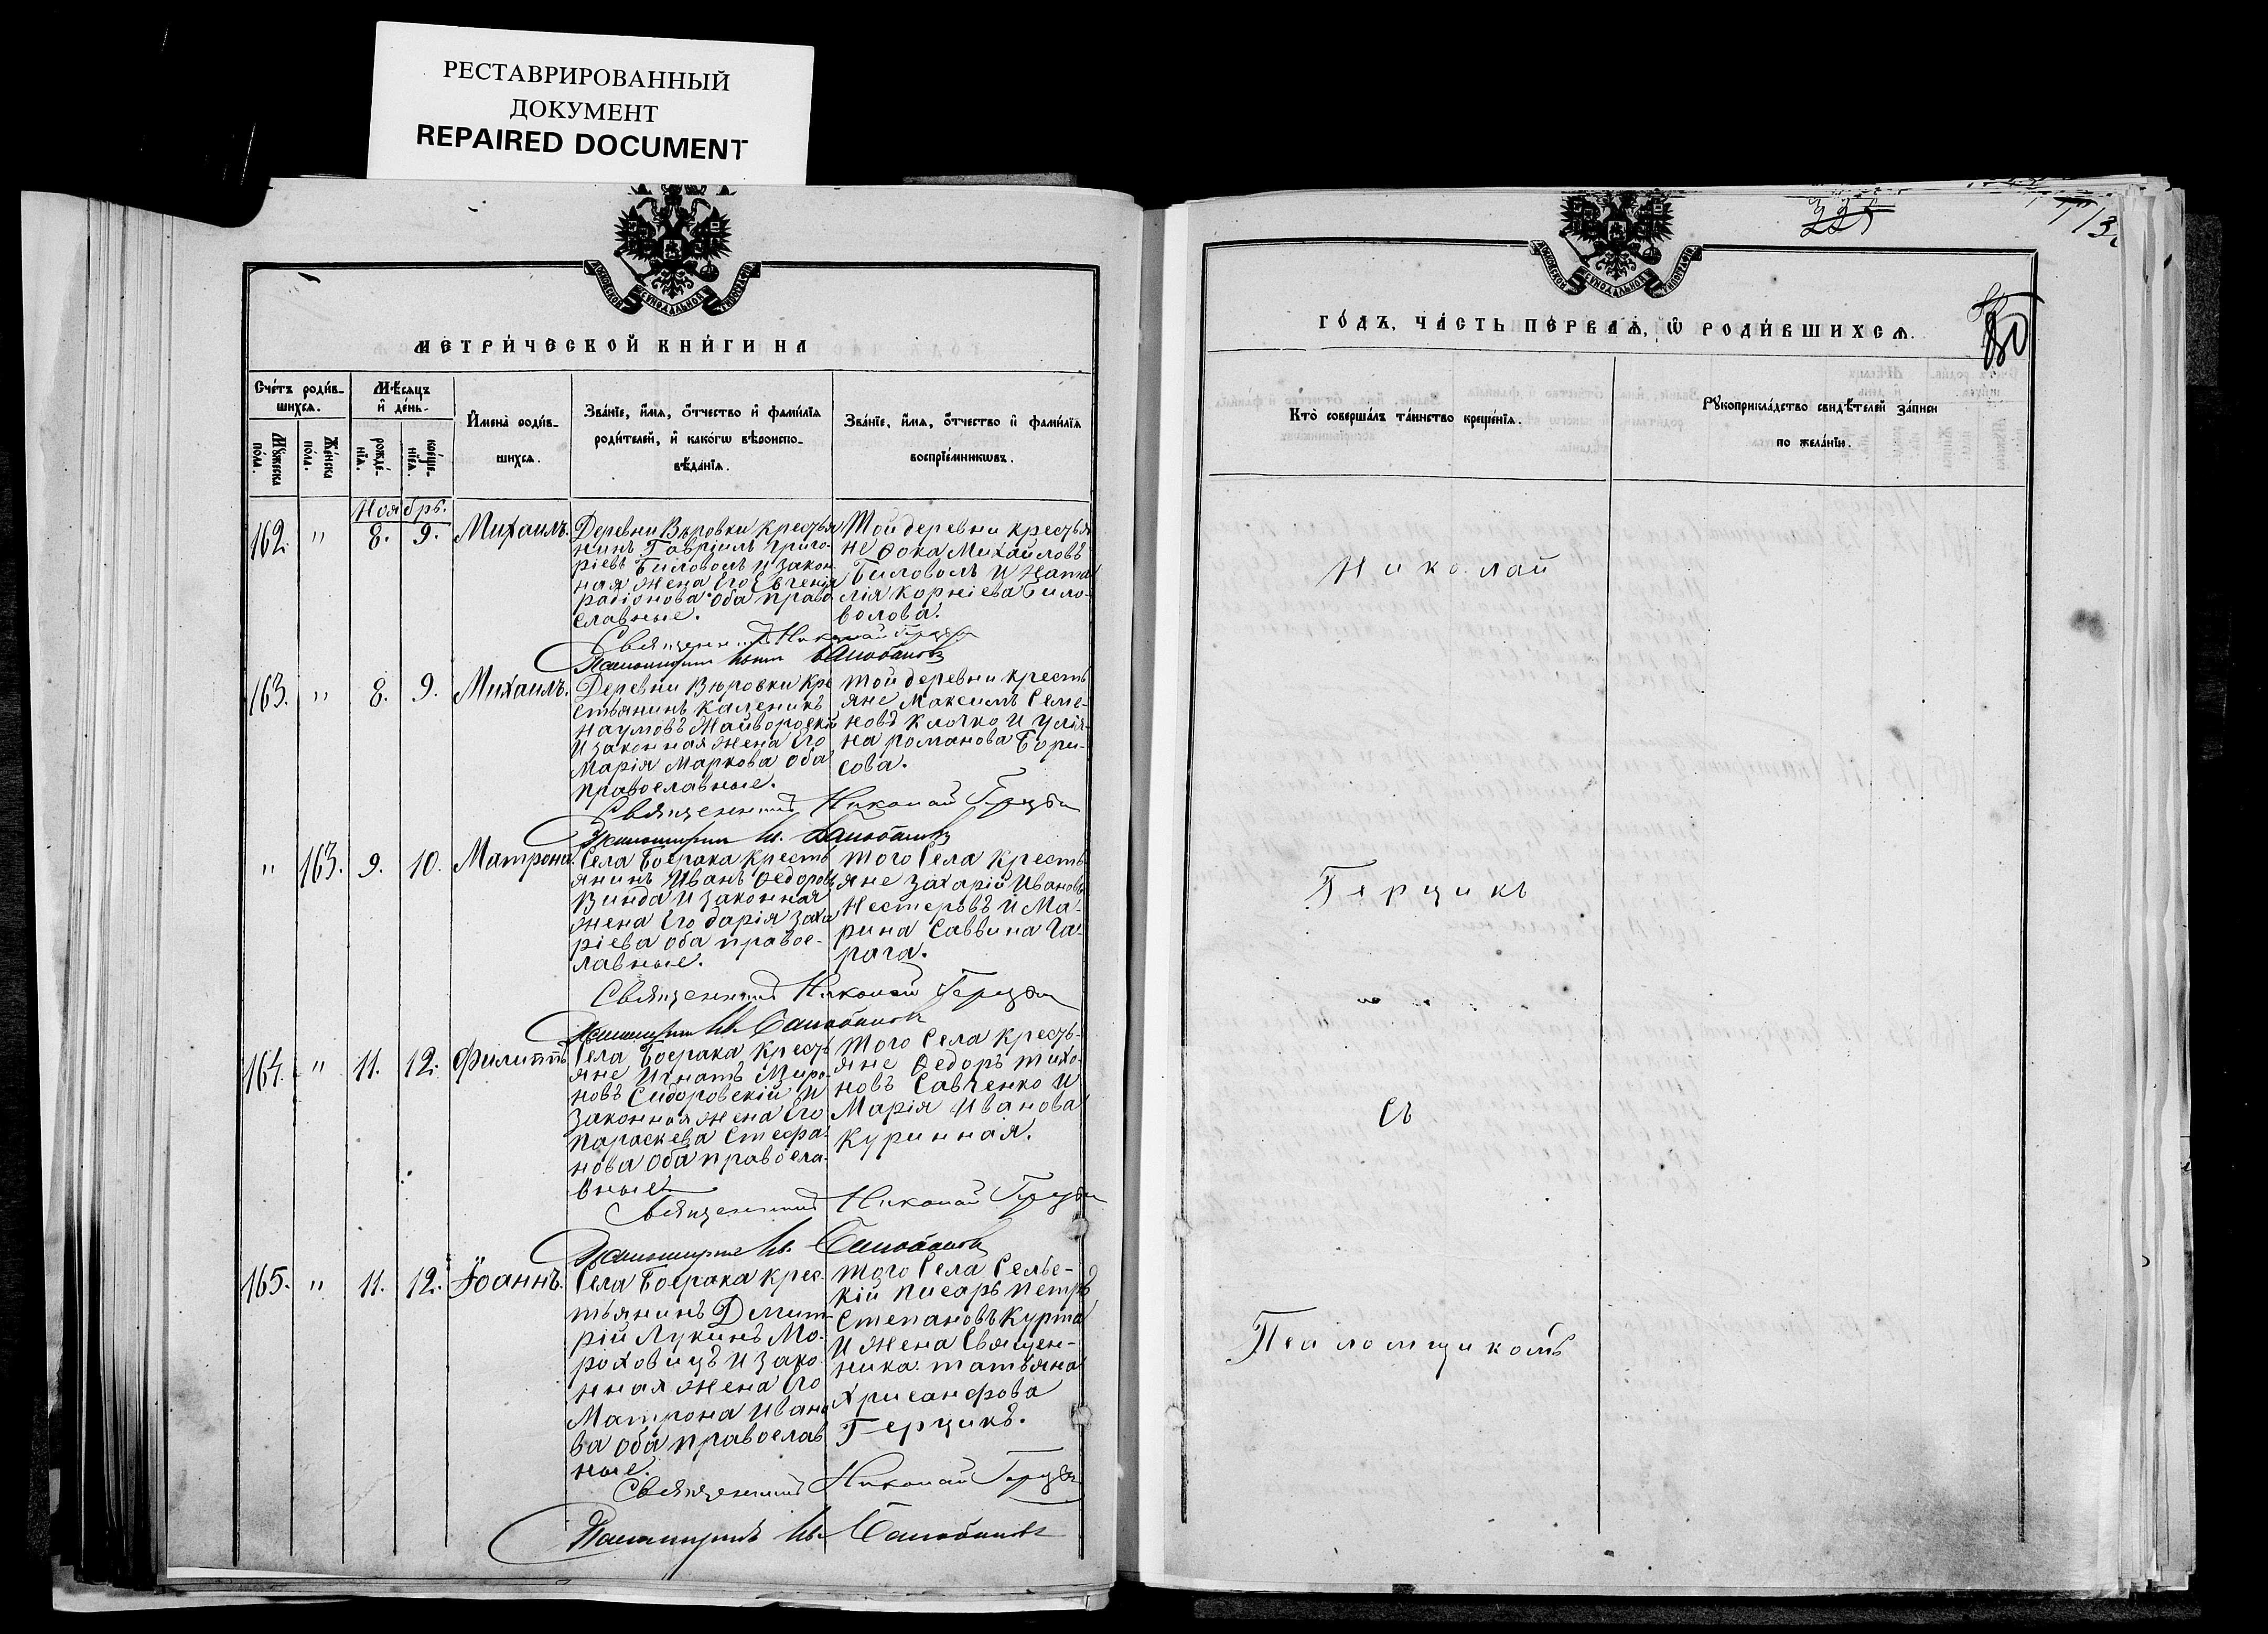 РЕСТАВРИРОВАННЫЙ
ДОКУМЕНТ
REPAIRED DOCUMENT
МОСКОВСКОЙ СѴНОДАЛЬНОЙ ТИПОГРАФІИ
МЕТРИ́ЧЕСКОЙ КНИ́ГИ НА
Сче́тъ роди́в-
шихся.
Мѣ́сяцъ
и҆ де́нь.
Мꙋ́жеска
по́ла.
Же́нска
по́ла.
рожде́-
нїѧ.
креще́-
нїѧ.
И҆мена̀ роди́в-
шихся.
Зва́нїе, и҆́мя, ѻ҆́тчество и҆ фами́лїя
роди́телей, и҆ како́гѡ вѣроиспо-
вѣ́данїя.
Зва́нїе, и҆́мя, ѻ҆́тчество и҆ фами́лїя
воспрїе́мникѡвъ.
Ноябрь.
162. " 8. 9. Михаилъ.
Деревни Вюровки крестья
нинъ Гавріилъ Григо-
ріевъ Биловолъ и закон
ная жена его Евгенія
Радіонова оба право
славные.
Той деревни крестья
не Фока Михайловъ
Биловолъ и Ната
лія Корніева Било-
волова.
Священникъ Николай Герцикъ
Псаломщикъ
163. " 8. 9. Михаилъ.
Деревни Вюровки кре
стьянинъ Каленикъ
Наумовъ Жайвороскій
и законная жена его
Марія Маркова оба
православные.
Той деревни кресть
яне Максимъ Семе-
новъ Клочко и Улія-
на Романова Бори-
сова.
Священникъ Николай Герцикъ
Псаломщикъ Ив.
" 163. 9. 10. Матрона.
Села Боерака кресть
янинъ Иванъ Федоровъ
Винда и законная
жена его Дарія Заха
ріева оба правос-
лавные.
Того села кресть
яне Захарій Ивановъ
Нестеровъ и Ма-
рина Саввина Га-
рага.
Священникъ Николай Герцикъ
Псаломщикъ Ив.
164. " 11. 12. Филиппъ
Села Боерака кресть
яне Игнатъ Миро-
новъ Сидоровскій и
законная жена его
Параскева Стефа-
нова оба правосла-
вные.
Того села кресть-
яне Федоръ Тихо-
новъ Савченко и
Марія Иванова
Куринная.
Священникъ Николай Герцикъ
Псаломщикъ Ив.
165. " 11. 12. Іоаннъ.
Села Боерака крес-
тьянинъ Димит-
рій Лукинъ Мо-
роховецъ и зако
нная жена его
Матрона Ивано
ва оба православ
ные.
Того села сельс-
кій писарь Петръ
Степановъ Курта
и жена священ-
ника Татьяна
Хрисанфова
Герцикъ.
Священникъ Николай Герцикъ
Псаломщикъ Ив.
МОСКОВСКОЙ СѴНОДАЛЬНОЙ ТИПОГРАФІИ
ГО́ДЪ, ЧА́СТЬ ПЕ́РВАѦ, Ѡ РОДИ́ВШИХСѦ.
Кто̀ соверша́лъ та́инство креще́нїя.
Рꙋкоприкла́дство свидѣ́телей за́писи
по жела́нїю.
Николай
Герцикъ
съ
Псаломщикомъ